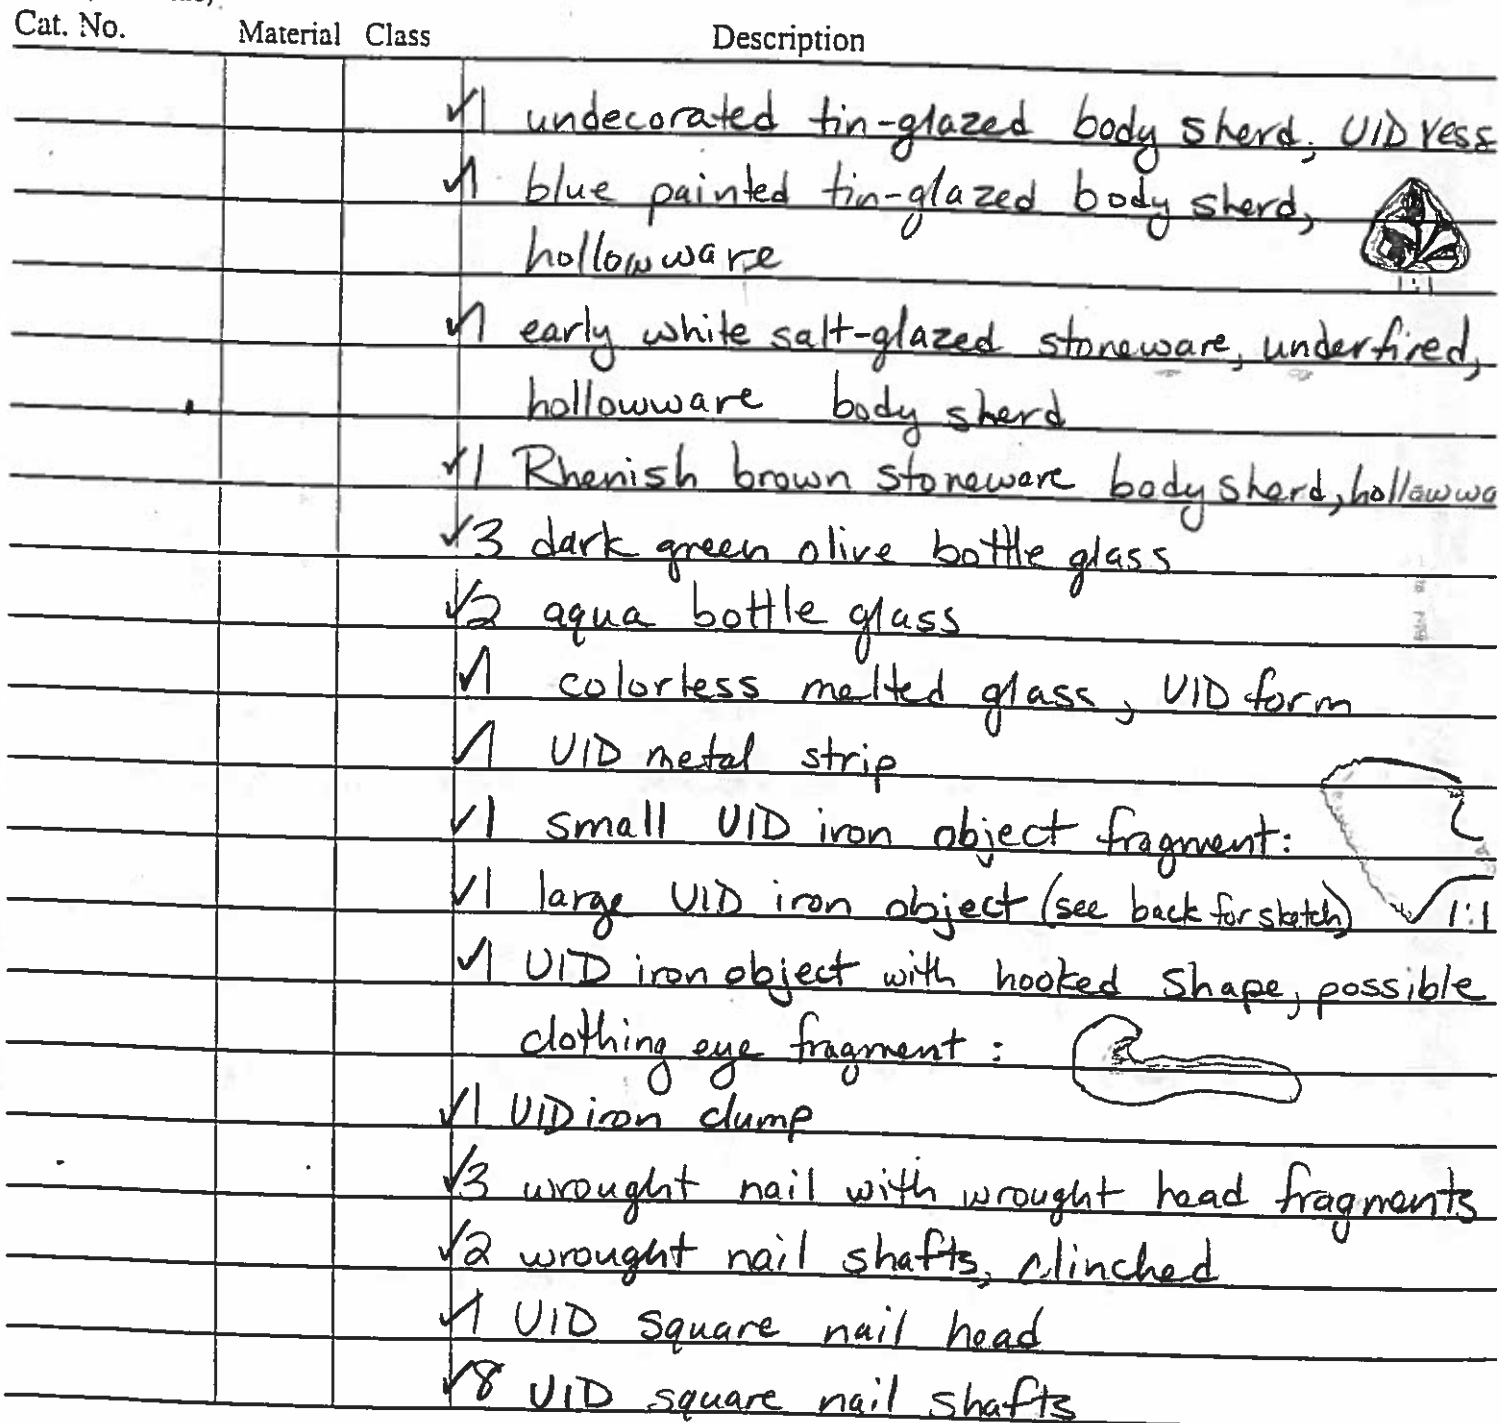 Cat. No. Material Class Description
✓1 undecorated tin-glazed body sherd, UID vess
✓1 blue painted tin-glazed body sherd,
hollowware
1:1
✓1 early white salt-glazed stoneware, underfired,
hollowware body sherd
✓1 Rhenish brown stoneware body sherd, hollowwa
✓3 dark green olive bottle glass
✓2 aqua bottle glass
✓1 colorless melted glass, UID form
✓1 UID metal strip
✓1 small UID iron object fragment:
✓1 large UID iron object (see back for sketch) 1:1
✓1 UID iron object with hooked shape, possible
clothing eye fragment:
✓1 UID iron clump
✓3 wrought nail with wrought head fragments
✓2 wrought nail shafts, clinched
✓1 UID square nail head
✓8 UID square nail shafts